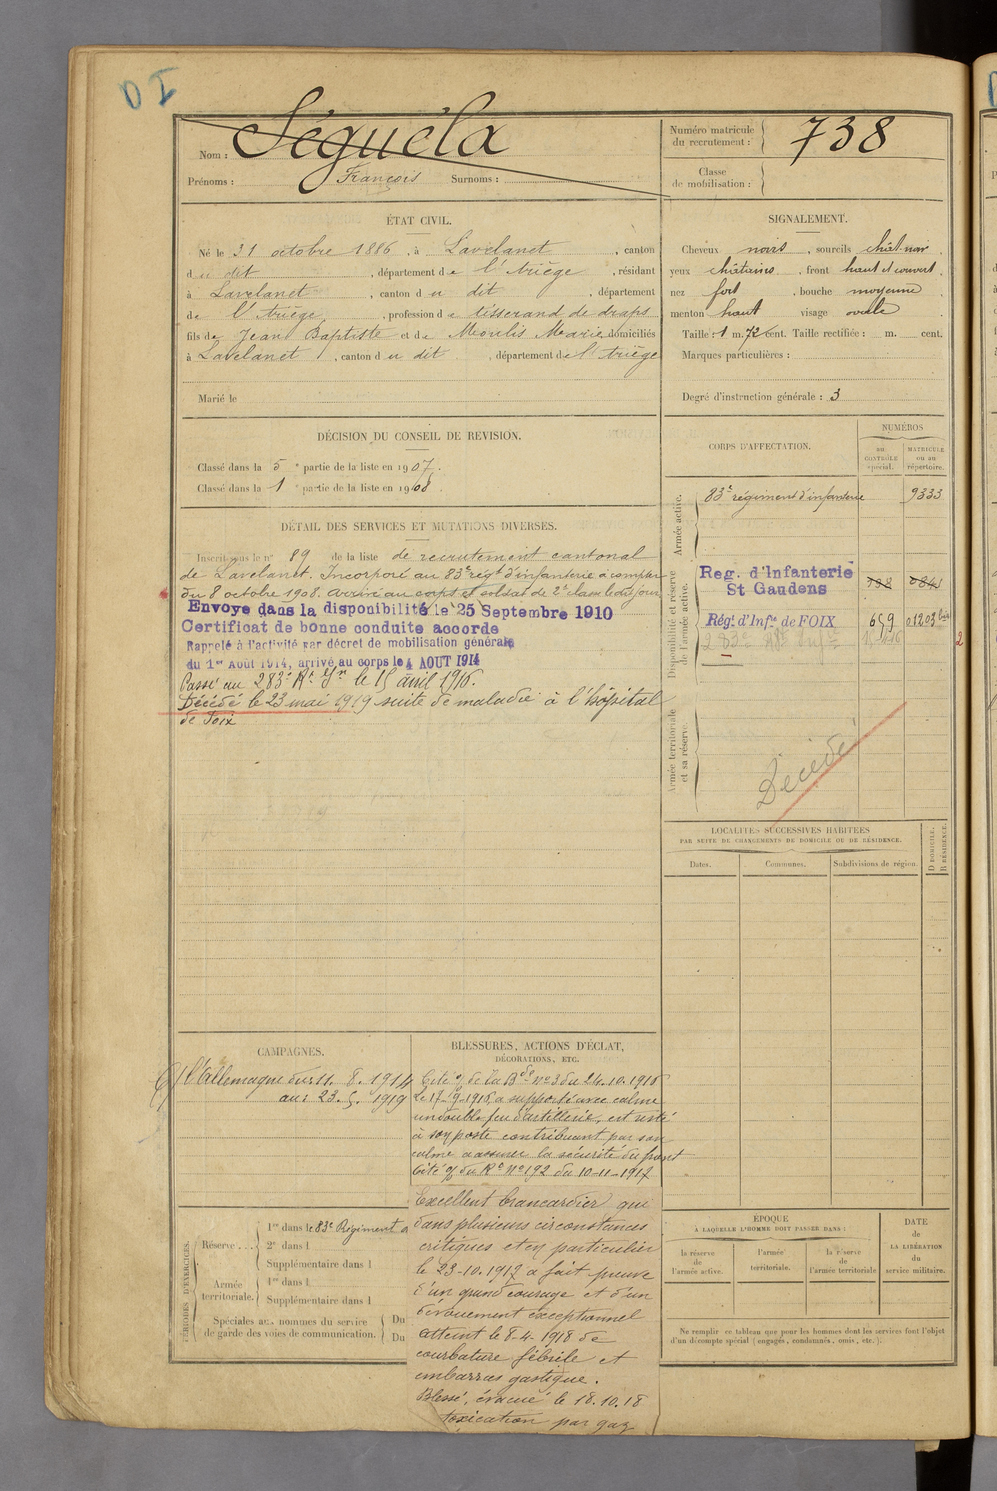 Nom : Séguéla
Prénoms : François Surnoms :
Numéro matricule du recrutement : 738
Classe de mobilisation :
ÉTAT CIVIL.
Né le 31 octobre 1886, à Lavelanet, canton
du dit, département de l'Ariège, résidant
à Lavelanet, canton du dit, département
de l'Ariège, profession de tisserand de draps
fils de Jean Baptiste et de Moulis Marie domiciliés
à Lavelanet, canton du dit, département de l'Ariège
Marié le
SIGNALEMENT.
Cheveux noirs, sourcils chât noir,
yeux châtains, front haut et couvert,
nez fort, bouche moyenne
menton haut visage ovale
Taille : 1 m. 72 cent. Taille rectifiée : m. cent.
Marques particulières :
Degré d'instruction générale : 3
DÉCISION DU CONSEIL DE REVISION.
Classé dans la 5e partie de la liste en 1907.
Classé dans la 1 e partie de la liste en 1908.
DÉTAIL DES SERVICES ET MUTATIONS DIVERSES.
Inscrit sous le n° 89 de la liste de recrutement cantonal
de Lavelanet. Incorporé au 83e régt d'infanterie à compter
du 8 octobre 1908. Arrivé au corps et soldat de 2e classe le dit jour
Envoye dans la disponibilité le 25 Septembre 1910
Certificat de bonne conduite accorde
Rappelé à l'activité par décret de mobilisation générale
du 1er Août 1914, arrivé au corps le 4 AOUT 1914
Passé au 283e Rt Ir le 15 avril 1916.
Décédé le 23 mai 1919 suite de maladie à l'hôpital
de Foix
CORPS D'AFFECTATION.
NUMÉROS
au CONTRÔLE spécial.
MATRICULE ou au répertoire.
Armée active.
83e régiment d'infanterie 9333
Disponibilité et réserve de l'armée active.
Reg. d'Infanterie
St Gaudens
Régt d'Infie de FOIX 659 01203 bis
283e
2
Armée territoriale et sa réserve.
Décédé
LOCALITÉS SUCCESSIVES HABITÉES
PAR SUITE DE CHANGEMENTS DE DOMICILE OU DE RÉSIDENCE.
Dates. Communes. Subdivisions de région. D DOMICILE. R RÉSIDENCE.
CAMPAGNES.
C/ l'Allemagne du : 11. 8. 1914
au : 23. 5. 1919
BLESSURES, ACTIONS D'ÉCLAT,
DÉCORATIONS, ETC.
Cité o/ de la Bde n° 3 du 24.10.1916
le 17-9-1916 a supporté avec calme
un double feu d'artillerie, est resté
à son poste contribuant par son
calme à assurer la sécurité du front
Cité o/ du Rt N° 192 du 10-11-1917
Excellent brancardier qui
dans plusieurs circonstances
critiques et en particulier
le 23-10.1917 a fait preuve
d'un grand courage et d'un
dévouement exceptionnel
Atteint le 8-4-1918 de
courbature fébrile et
embarras gastrique.
Blessé, évacué le 18.10.18
toxication par gaz
PÉRIODES D'EXERCICES.
Réserve...
1re dans le 83e Régiment
2e dans l
Supplémentaire dans l
Armée territoriale.
1re dans l
Supplémentaire dans l
Spéciales aux hommes du service de garde des voies de communication.
Du
Du
ÉPOQUE
À LAQUELLE L'HOMME DOIT PASSER DANS :
la réserve de l'armée active.
l'armée territoriale.
la réserve de l'armée territoriale
DATE DE LA LIBÉRATION du service militaire.
Ne remplir ce tableau que pour les hommes dont les services font l'objet
d'un décompte spécial (engagés, condamnés, omis, etc.).